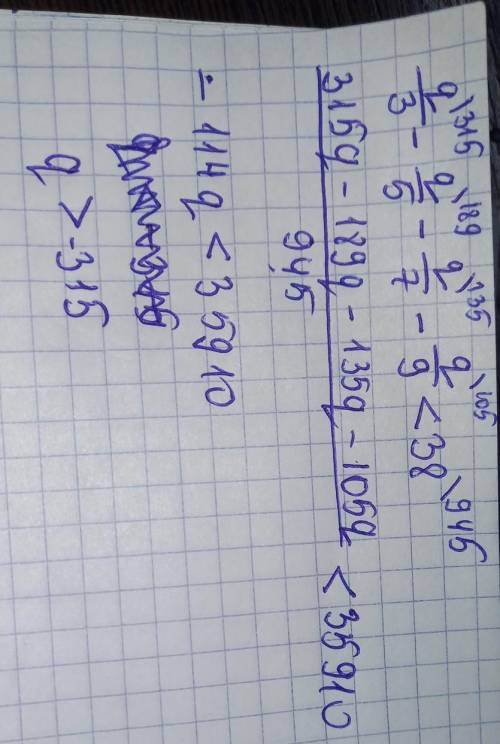 q/3 \315 − q/5 \189 − q/7 \135 − q/9 \105 < 38 \945
315q − 189q − 135q − 105q / 945 < 35910
= 114q < 35910
q > -315